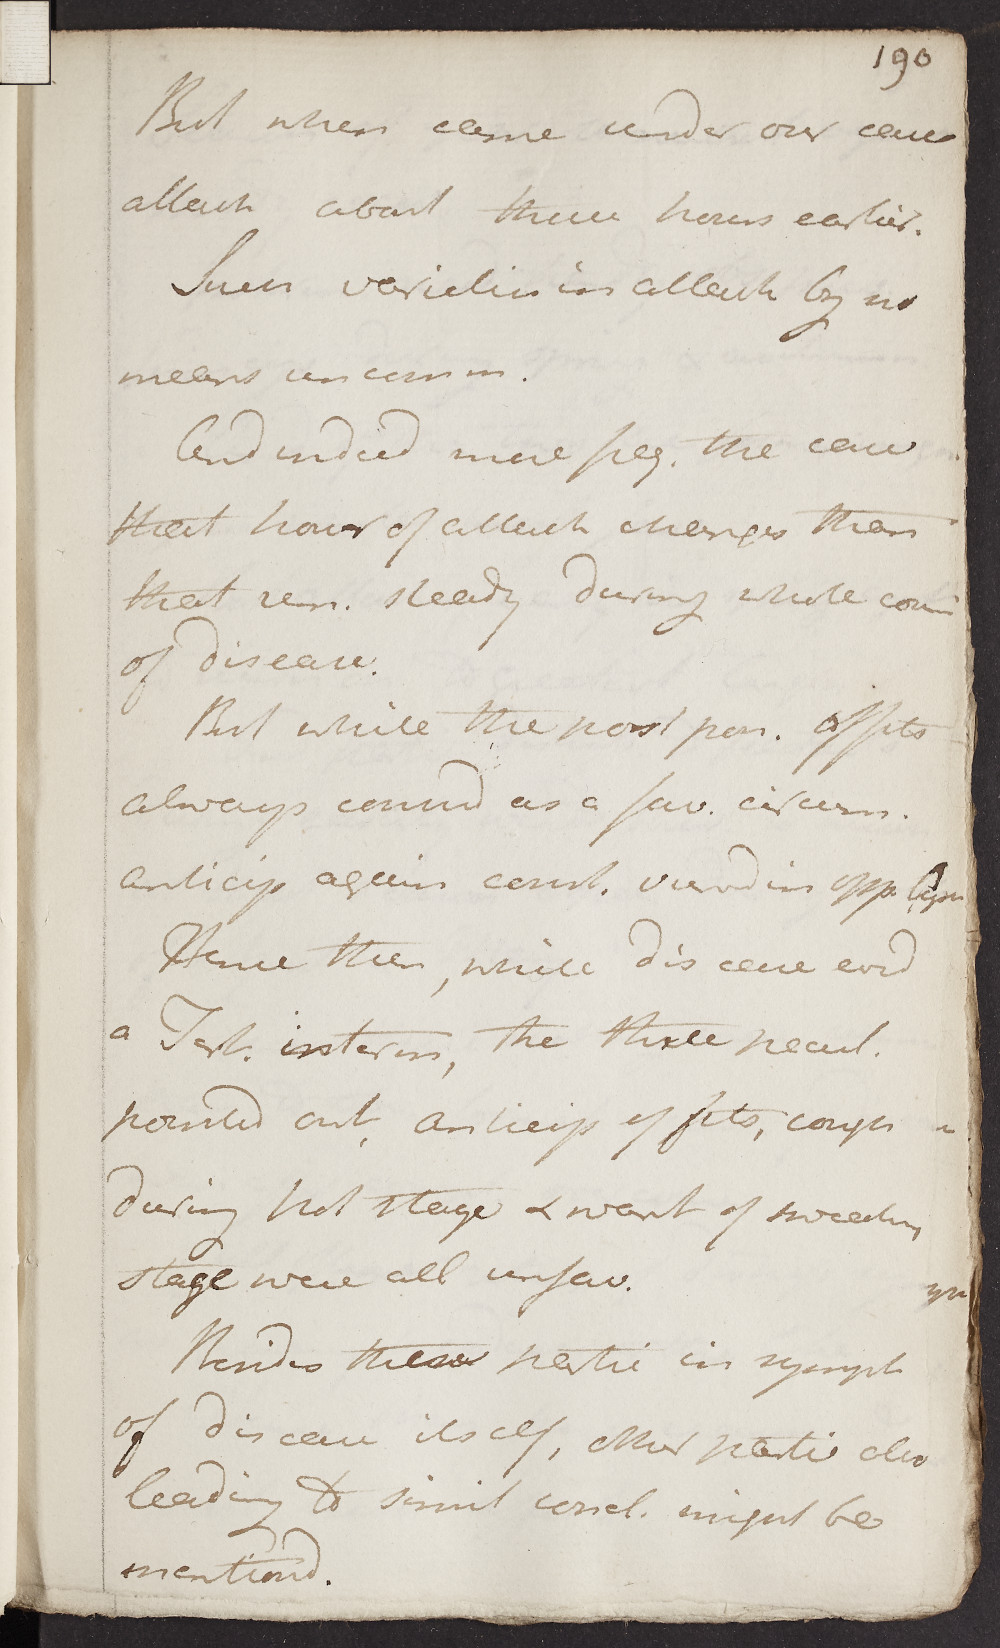 190
But when came under our care
attack about three hours earlier.
Such varieties in attack by no
means uncomm.
And indeed more freq. the case
that hour of attack changes than
that rem. steady during whole cours
of disease.
But while the post pon. of fits
always considd as a fav. circum.
anticip again const. viewd in opp. light
Hence then, while disease evid
a Tert. interm, the three pecul.
pointed out, anticip of fits, cough
during hot stage & want of sweating
stage were all unfav.
Besides these partic in sympt
of disease itself, other partic also
leading to simil concl. might be
mentiond.